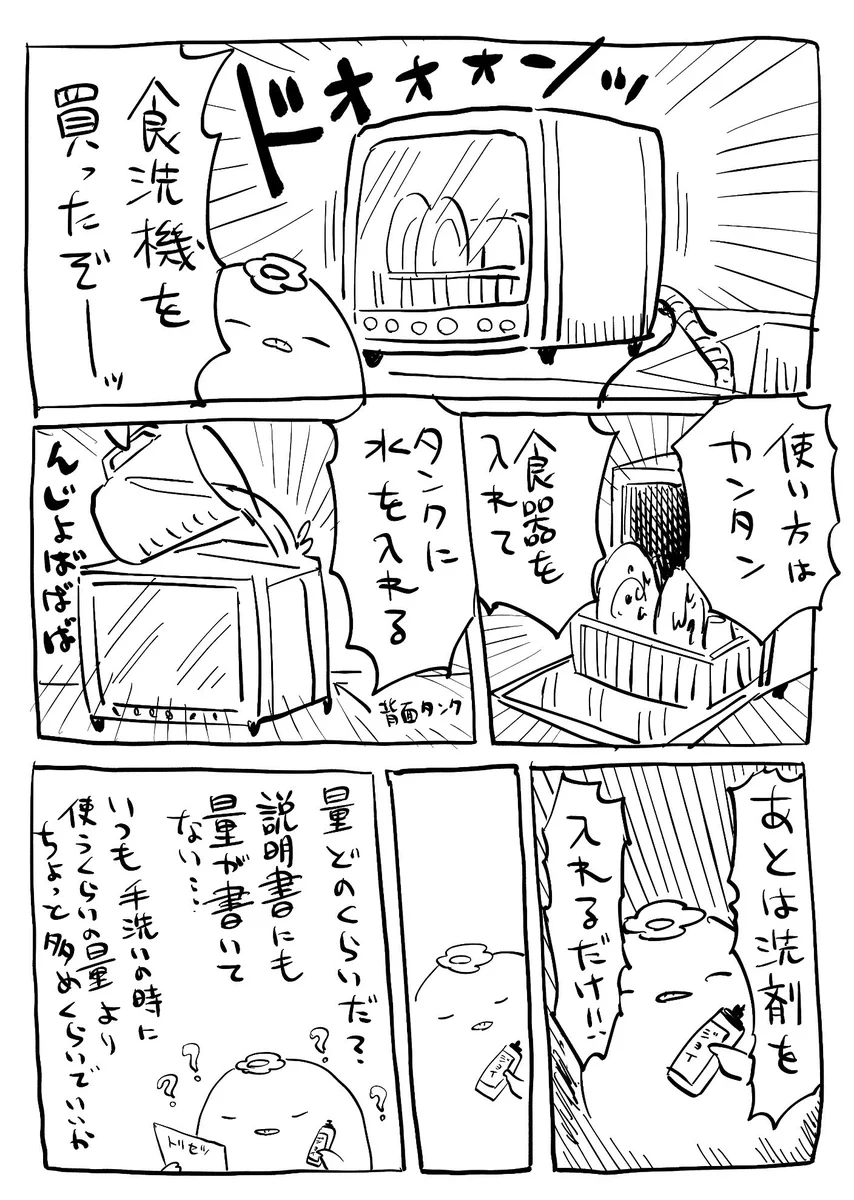 ドオオオンッ
食洗機を
買ったぞーッ
使い方は
カンタン
食器を
入れて
タンクに
水を入れる
背面タンク
んじょばばば
あとは洗剤を
入れるだけ!!
ジョイ
ジョイ
量どのくらいだ?
説明書にも
量が書いて
ない…
いつも手洗いの時に
使うくらいの量より
ちょっと多めくらいでいいか
? ? ? ?
トリセツ